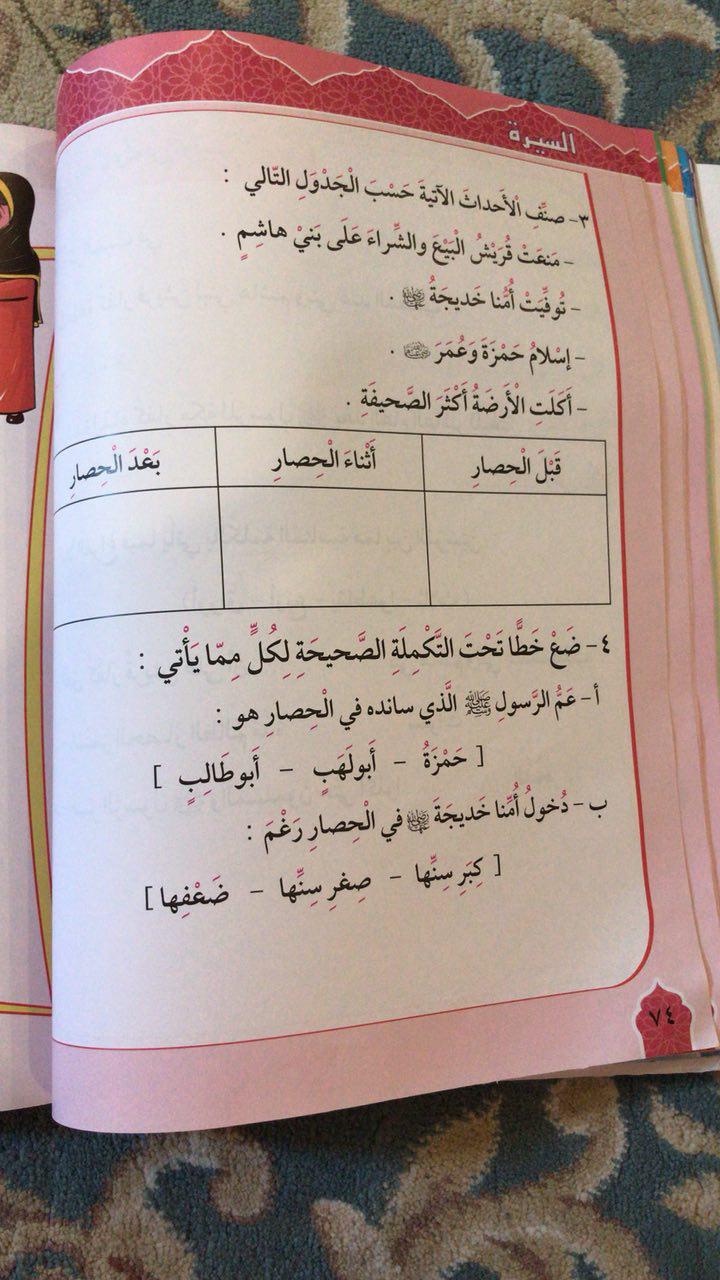 السيرة
٣- صنِّفِ الْأَحداثَ الآتيةَ حَسْبَ الْجَدْوَلِ التّالي :
- مَنعَتْ قُرَيْشُ الْبَيْعَ والشِّراءَ عَلَى بَنيْ هاشِمٍ .
- تُوفِّيَتْ أُمُّنا خَديجَةُ رضي الله عنها .
- إسْلامُ حَمْزَةَ وَعُمَرَ رضي الله عنهما .
- أَكَلَتِ الْأَرَضَةُ أَكْثَرَ الصَّحيفَةِ .
قَبْلَ الْحِصارِ
أَثْناءَ الْحِصارِ
بَعْدَ الْحِصارِ
٤- ضَعْ خَطًّا تَحْتَ التَّكْمِلَةِ الصَّحيحَةِ لِكُلٍّ مِمّا يَأْتي :
أ- عَمُّ الرَّسولِ ﷺ الَّذي سانده في الْحِصارِ هو :
[ حَمْزَةُ - أَبولَهَبٍ - أَبوطَالِبٍ ]
ب- دُخولُ أُمِّنا خَديجَةَ رضي الله عنها في الْحِصارِ رَغْمَ :
[ كِبَرِ سِنِّها - صِغرِ سِنِّها - ضَعْفِها ]
٧٤